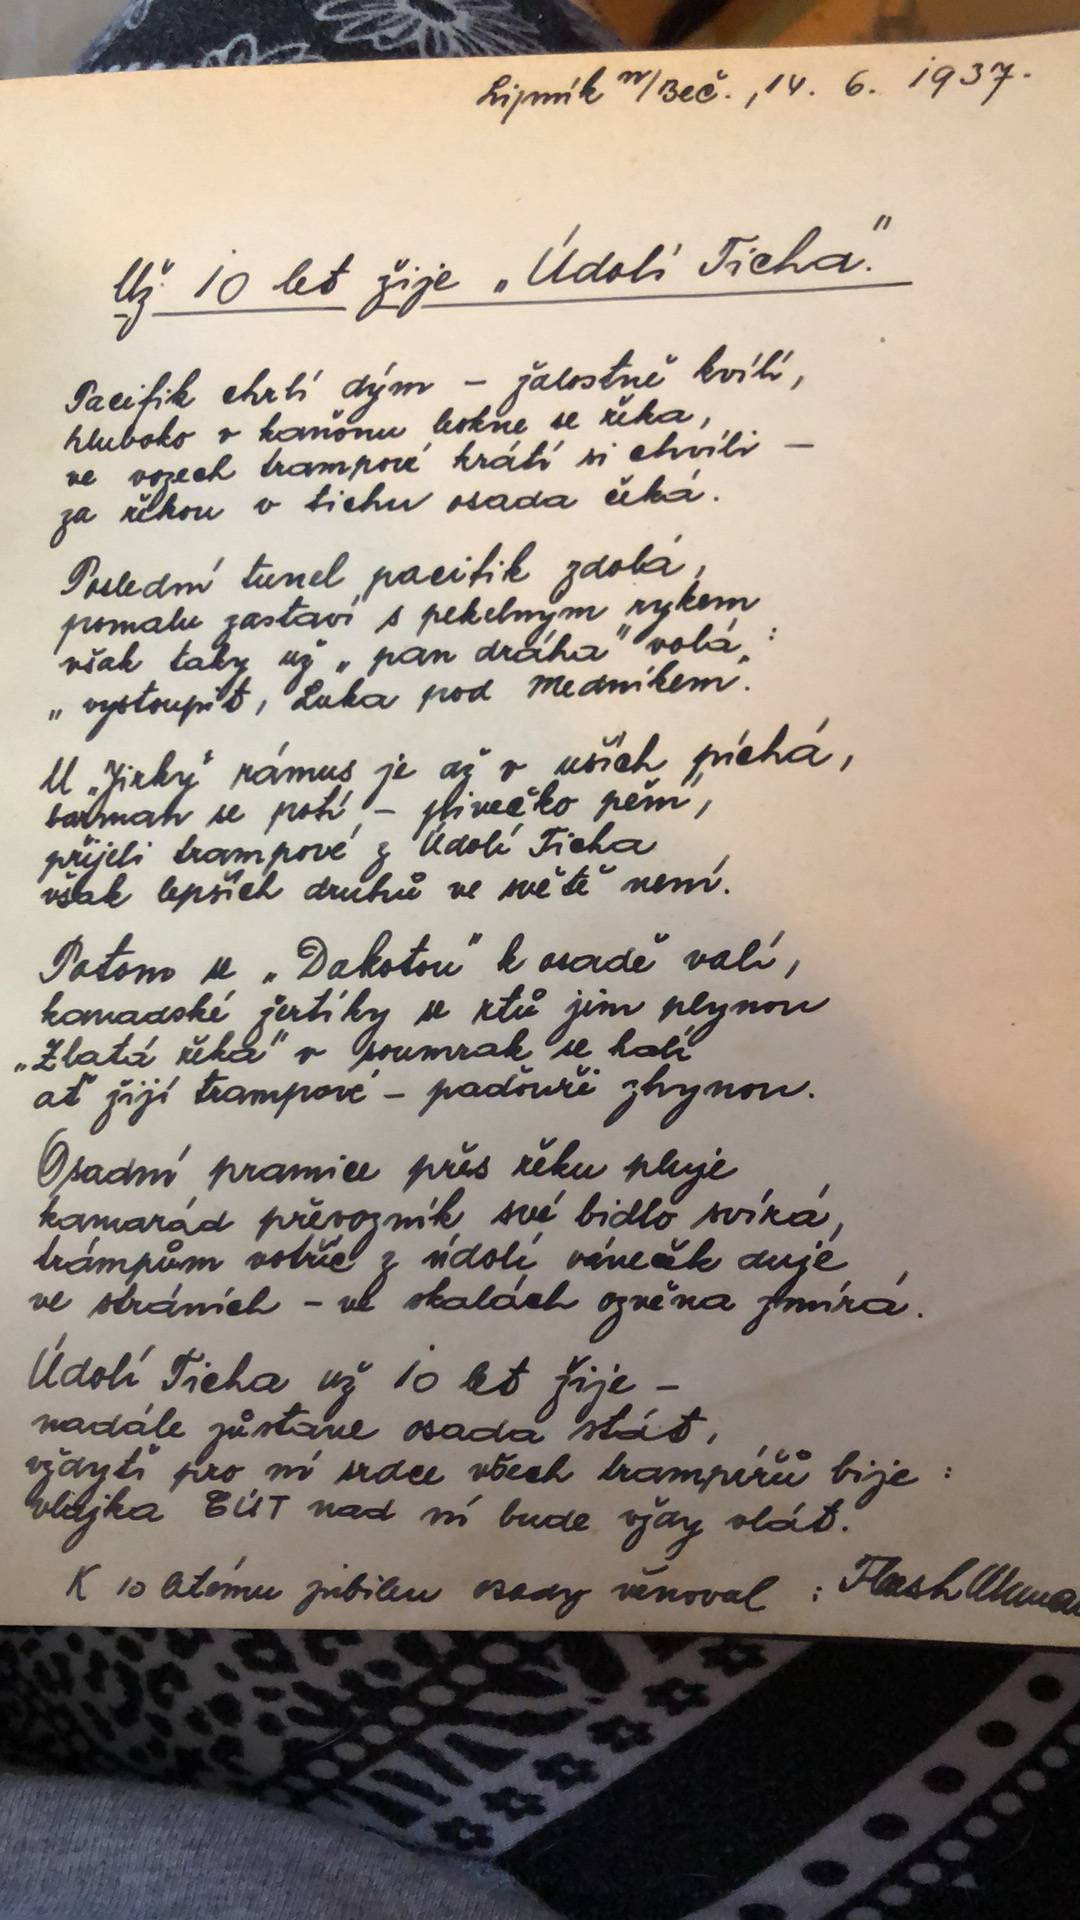 Lipník n/Beč., 14. 6. 1937.
Už 10 let žije „Údolí Ticha."
Pacifik chrlí dým – žalostně kvílí,
hluboko v kaňonu leskne se řeka,
ve vozech trampové krátí si chvíli –
za řekou v tichu osada čeká.
Poslední tunel pacifik zdolá,
pomalu zastaví s pekelným rykem
však taky už „pan dráha" volá:
„vystoupit, Luka pod Medníkem."
U „Jirky" rámus je až v uších píchá,
barman se potí – pivečko pění,
přijeli trampové z Údolí Ticha
však lepších druhů ve světě není.
Potom se „Dakotou" k osadě valí,
kamadské žertíky se rtů jim plynou
„Zlatá řeka" v soumrak se halí
ať žijí trampové – padouři zhynou.
Osadní pramice přes řeku pluje
kamarád převozník své bidlo svírá,
trámpům vstříc z údolí váneček duje
ve stráních – ve skalách ozvěna zmírá.
Údolí Ticha už 10 let žije –
nadále zůstane osada stát,
vždyťi pro ní srdce všech trampířů bije:
vlajka EÚST nad ní bude vždy vlát.
K 10 letému jubileu osady věnoval: Flash